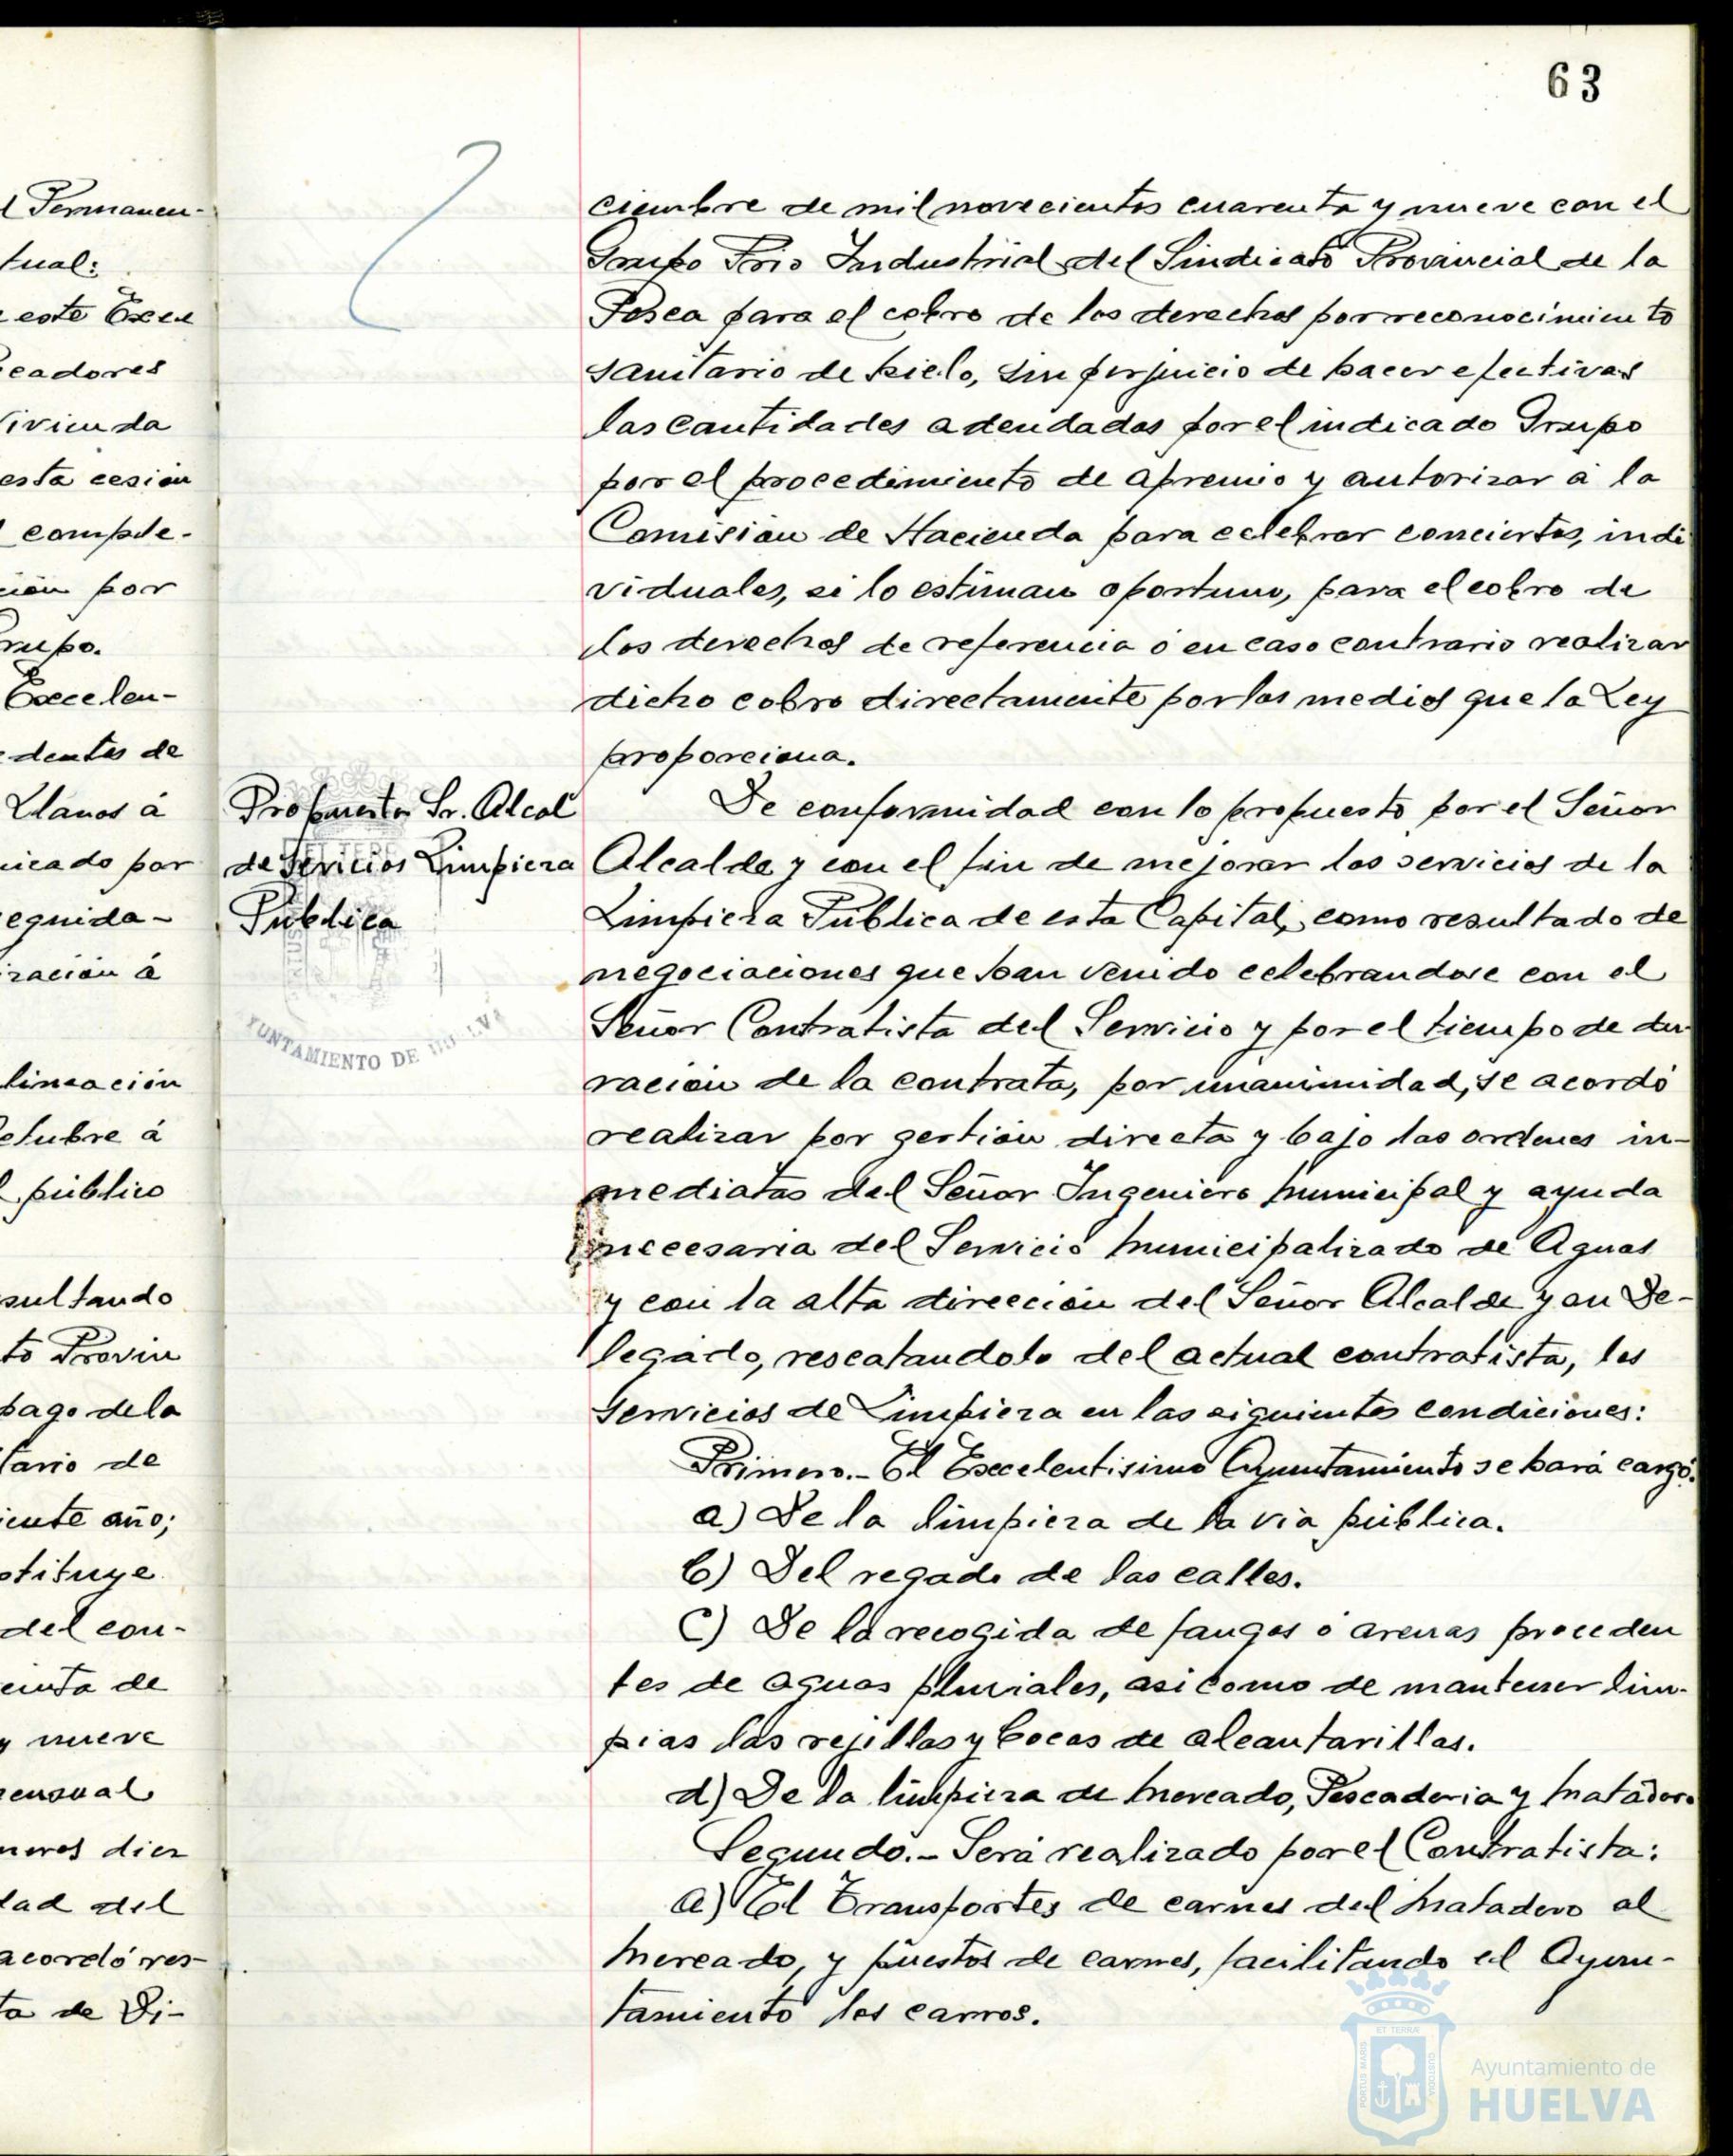 63
l Permanen-
tual:
este Exce
eadores
vivienda
esta cesión
comple-
ción por
rupo.
Excelen-
dentes de
Llanos á
nicado por
eguida-
ración á
lineación
ctubre á
l público
sultando
to Provin
pago de la
tario de
iente año;
stituye
del con-
enta de
y nueve
ensual
meros diez
dad del
acordó res-
ta de Di-
ciembre de mil novecientos cuarenta y nueve con el
Grupo Frio Industrial del Sindicato Provincial de la
Pesca para el cobro de los derechos por reconocimiento
sanitario de hielo, sin perjuicio de hacer efectivas
las cantidades adeudadas por el indicado Grupo
por el procedimiento de apremio y autorizar á la
Comisión de Hacienda para celebrar conciertos, indi
viduales, si lo estiman oportuno, para el cobro de
los derechos de referencia ó en caso contrario realizar
dicho cobro directamente por los medios que la Ley
proporciona.
Propuesta Sr. Alcal
de Servicios Limpieza
Pública
AYUNTAMIENTO DE HUELVA
De conformidad con lo propuesto por el Señor
Alcalde y con el fin de mejorar los servicios de la
Limpieza Pública de esta Capital, como resultado de
negociaciones que han venido celebrandose con el
Señor Contratista del Servicio y por el tiempo de du-
ración de la contrata, por unanimidad, se acordó
realizar por gestión directa y bajo las ordenes in-
mediatas del Señor Ingeniero Municipal y ayuda
necesaria del Servicio Municipalizado de Aguas
y con la alta dirección del Señor Alcalde y su De-
legado, rescatandolo del actual contratista, los
servicios de Limpieza en las siguientes condiciones:
Primero.- El Excelentisimo Ayuntamiento se hará cargo:
a) De la limpieza de la via pública.
b) Del regado de las calles.
C) De la recogida de fangos ó arenas proceden
tes de aguas pluviales, asi como de mantener lim-
pias las rejillas y bocas de alcantarillas.
d) De la limpieza de Mercado, Pescaderia y Matadero
Segundo.- Será realizado por el Contratista:
a) El Transportes de carnes del Matadero al
Mercado, y puestos de carnes, facilitando el Ayun-
tamiento los carros.
ET TERRÆ
PORTUS MARIS
CUSTODIA
Ayuntamiento de
HUELVA